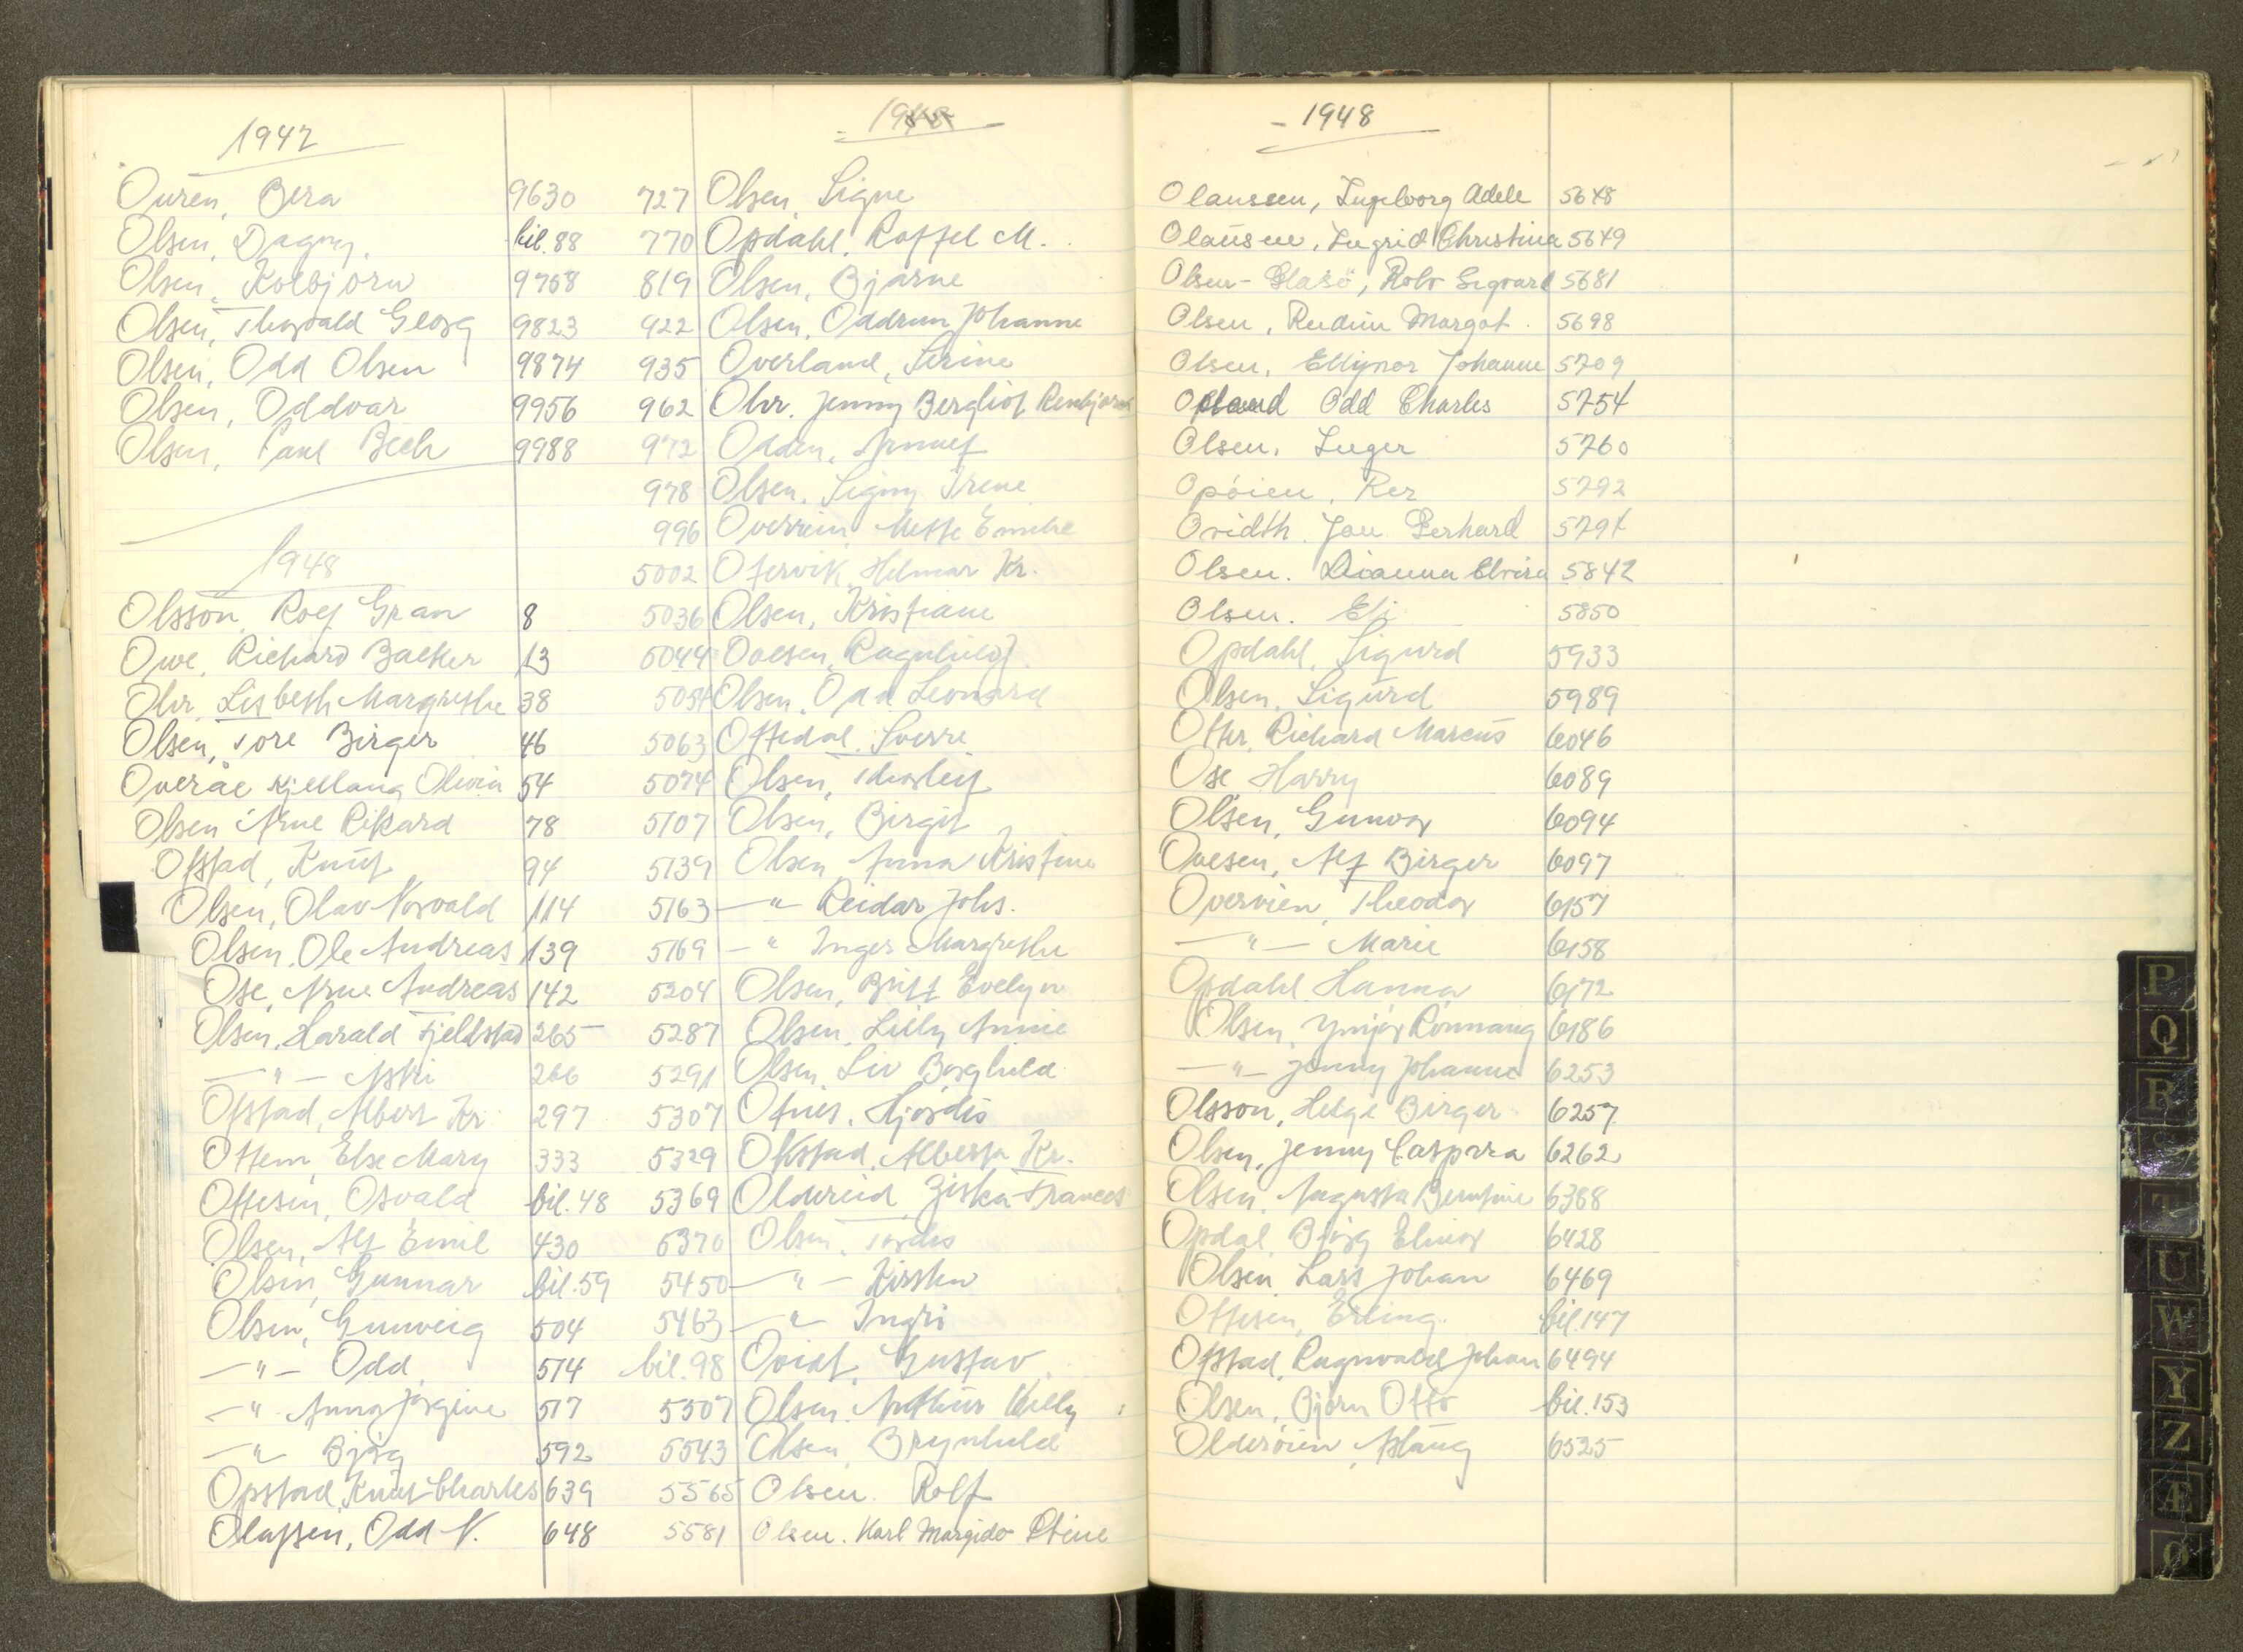 1947
Ouren, Bera 9630
Olsen, Dagny. bil. 88
Olsen, Kolbjørn 9768
Olsen, Thorvald Georg 9823
Olsen, Odd Olsen 9874
Olsen, Oddvar 9956
Olsen, Carl Bech 9988
1948
Olsson, Rolf Gran 8
Owe, Richard Backer 13
Ohr, Lisbeth Margrethe 38
Olsen, Tore Birger 46
Overåe Kjellaug Olivia 54
Olsen Arne Rikard 78
Ofstad, Knut 94
Olsen, Olav Norvald 114
Olsen, Ole Andreas 139
Ose, Arne Andreas 142
Olsen, Harald Fjeldstad 265
—"— Aski 266
Ofstad, Albert Kr. 297
Ottem, Else Mary 333
Ottesen, Osvald bil. 48
Olsen, Alf Emil 430
Olsen, Gunnar bil. 59
Olsen, Gunveig 504
—"— Odd 514
—"— Anna Jørgine 517
—"— Bjørg 592
Opstad, Knut Charles 639
Olafsen, Odd N. 648
727 Olsen, Signe
770 Opdahl, Roffel M.
819 Olsen, Bjarne
922 Olsen, Oddrun Johanne
935 Overland, Serine
962 Ohr, Jenny Bergliot
972 Odden, Arnulf
978 Olsen, Signy Irene
996 Overrein, Mette Emilie
5002 Otervik, Helmar Kr.
5036 Olsen, Kristiane
5044 Ovesen, Ragnhild J.
5054 Olsen, Odd Leonard
5063 Oftedal, Sverre
5074 Olsen, Thorleif
5107 Olsen, Birgit
5139 Olsen, Anna Kristine
5163 —"— Reidar Johs.
5169 —"— Inger Margrethe
5204 Olsen, Britt Evelyn
5287 Olsen, Lilly Annie
5291 Olsen, Liv Borghild
5307 Ofnes, Hjørdis
5329 Okstad, Alberta Kr.
5369 Oldereid, Ziska Frances
5370 Olsen, Tordis
5450 —"— Kirsten
5463 —"— Ingri
bil. 98 Ovidt, Gustav
5507 Olsen, Arthur Willy
5543 Olsen, Brynhild
5565 Olsen, Rolf
5581 Olsen. Karl Margido Stine
- 1948
Olaussen, Ingeborg Adele 5648
Olausen, Ingrid Christina 5649
Olsen-Glasö, Rolv Sigvard 5681
Olsen, Reidun Margot 5698
Olsen, Ellynor Johanne 5709
Opland Odd Charles 5754
Olsen, Inger 5760
Opöien, Per 5792
Ovidth. Jon Gerhard 5794
Olsen. Dianna Elvira 5842
Olsen. Eli 5850
Opdahl, Sigurd 5933
Olsen, Sigurd 5989
Other, Richard Marcus 6046
Ose Harry 6089
Olsen, Gunvor 6094
Ovesen, Alf Birger 6097
Overvien, Theodor 6157
—"— Marie 6158
Opdahl Hanna 6172
Olsen, Ynjør Rønnaug 6186
—"— Jenny Johanne 6253
Olsson, Helge Birger 6257
Olsen, Jenny Caspara 6262
Olsen, Augusta Berntine 6388
Opdal Bjørg Elinor 6428
Olsen Lars Johan 6469
Ottesen, Erling bil. 147
Ofstad, Ragnvald Johan 6494
Olsen, Bjørn Otto bil. 153
Olderöien, Aslaug 6525
P
Q
R
S
T
U
W
Y
Z
Æ
Ø